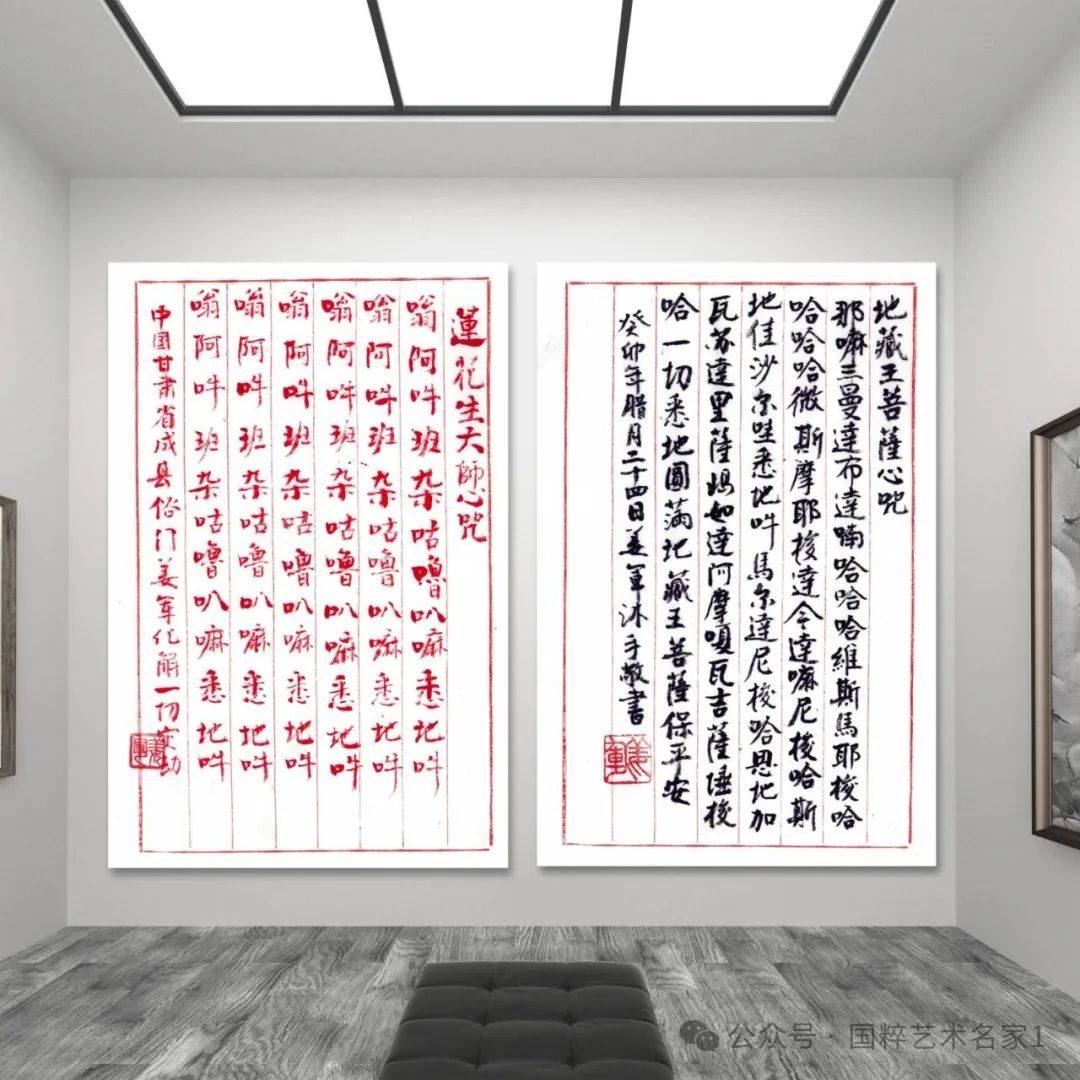 地藏王菩薩心咒
那嘛三曼達布達喃哈哈哈維斯馬耶梭哈
哈哈哈微斯摩耶梭達今達嘛尼梭哈斯
地佳沙尔哇悉地吽馬尔達尼梭哈思地加
瓦苏達里薩埚如達阿摩嗄瓦吉薩埵梭
哈一切悉地圓滿地藏王菩薩保平安
癸卯年腊月二十四日姜軍沐手敬書
蓮花生大師心咒
嗡阿吽班杂咕嚕叭嘛悉地吽
嗡阿吽班杂咕嚕叭嘛悉地吽
嗡阿吽班杂咕嚕叭嘛悉地吽
嗡阿吽班杂咕嚕叭嘛悉地吽
嗡阿吽班杂咕嚕叭嘛悉地吽
嗡阿吽班杂咕嚕叭嘛悉地吽
中国甘肃省成县俗门姜军化解一切灾劫
公众号 · 国粹艺术名家1